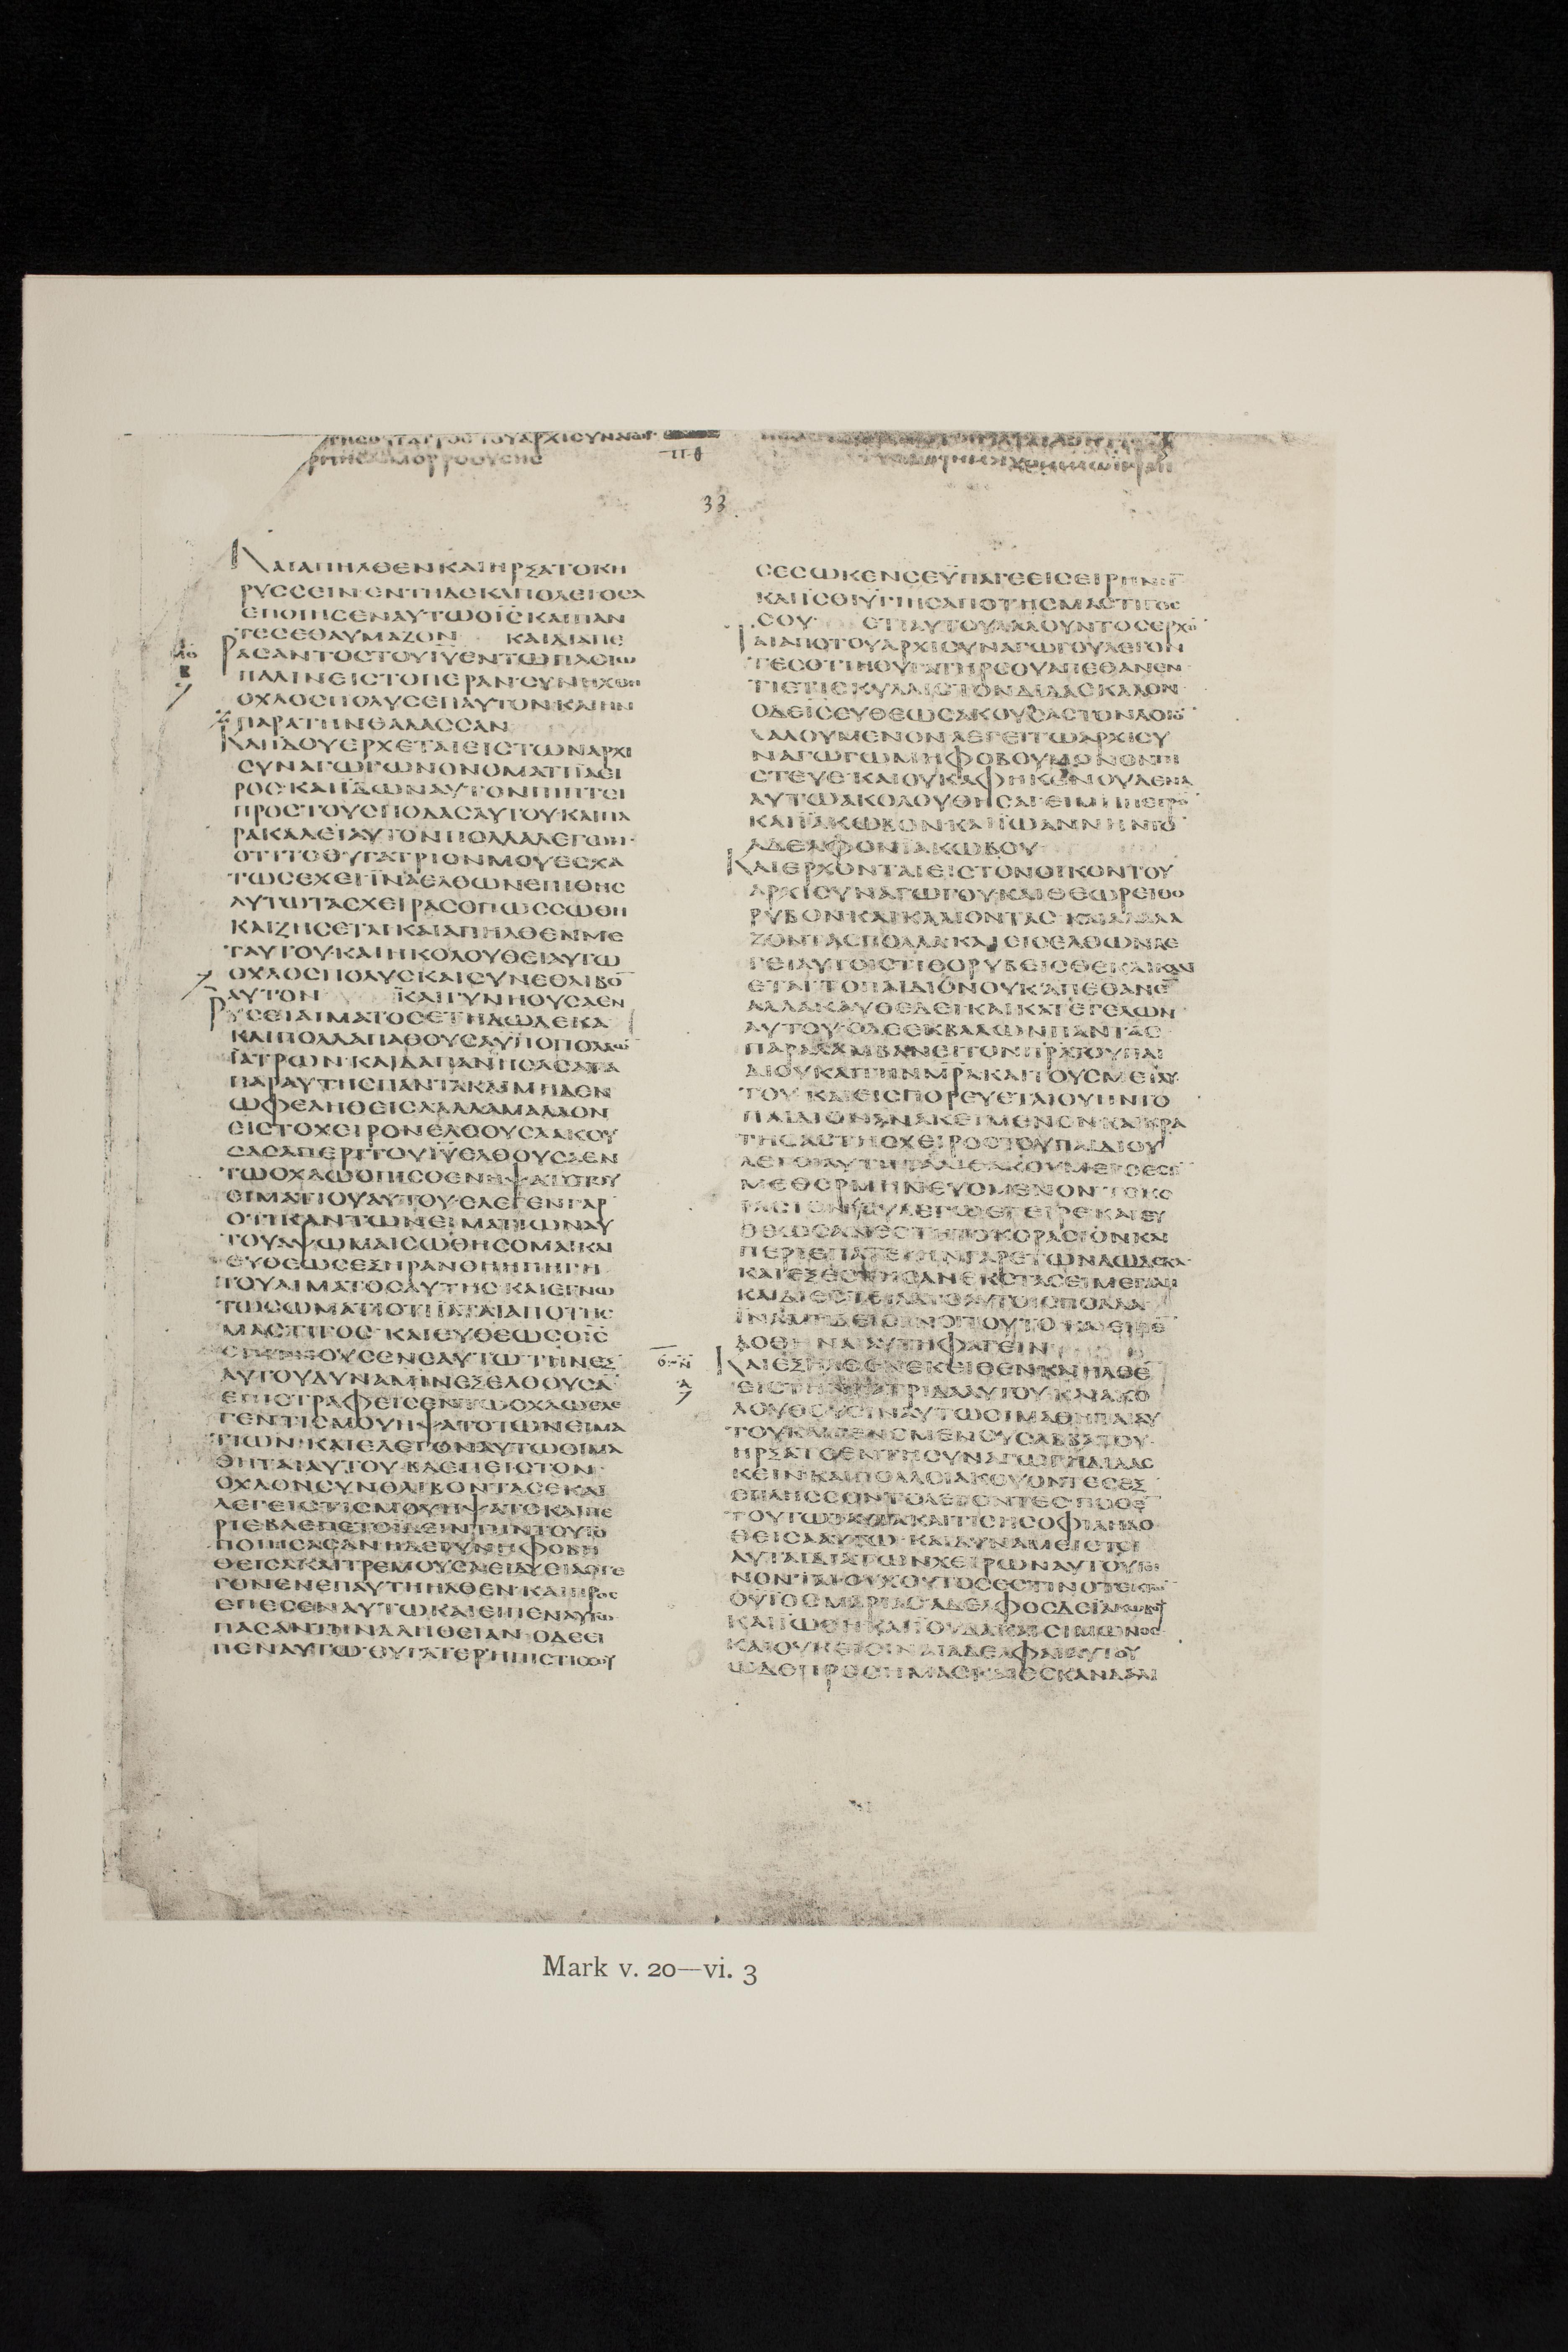 ΤΗCΘΥΓΑΤΡΟCΤΟΥΑΡΧΙCΥΝΑΓΩΓ
33
ΚΑΙΑΠΗΛΘΕΝΚΑΙΗΡΞΑΤΟΚΗ
ΡΥCCΕΙΝ·ΕΝΤΗΔΕΚΑΠΟΛΕΙΟCΑ
ΕΠΟΙΗCΕΝΑΥΤΩΟΙC̅ΚΑΙΠΑΝ
ΤΕCΕΘΑΥΜΑΖΟΝ ΚΑΙΔΙΑΠΕ
ΡΑCΑΝΤΟCΤΟΥΙΥ̅ΕΝΤΩΠΛΟΙΩ
ΠΑΛΙΝΕΙCΤΟΠΕΡΑΝ·CΥΝΗΧΘΗ
ΟΧΛΟCΠΟΛΥCΕΠΑΥΤΟΝ·ΚΑΙΗΝ
ΠΑΡΑΤΗΝΘΑΛΑCCΑΝ
ΚΑΙΪΔΟΥΕΡΧΕΤΑΙΕΙCΤΩΝΑΡΧΙ
CΥΝΑΓΩΓΩΝΟΝΟΜΑΤΙΪΑΕΙ
ΡΟC·ΚΑΙΪΔΩΝΑΥΤΟΝΠΙΠΤΕΙ
ΠΡΟCΤΟΥCΠΟΔΑCΑΥΤΟΥ·ΚΑΙΠΑ
ΡΑΚΑΛΕΙΑΥΤΟΝΠΟΛΛΑΛΕΓΩΝ·
ΟΤΙΤΟΘΥΓΑΤΡΙΟΝΜΟΥΕCΧΑ
ΤΩCΕΧΕΙΪΝΑΕΛΘΩΝΕΠΙΘΗC
ΑΥΤΩΤΑCΧΕΙΡΑCΟΠΩCCΩΘΗ
ΚΑΙΖΗCΕΤΑΙΚΑΙΑΠΗΛΘΕΝΜΕ
ΤΑΥΤΟΥ·ΚΑΙΗΚΟΛΟΥΘΕΙΑΥΤΩ
ΟΧΛΟCΠΟΛΥCΚΑΙCΥΝΕΘΛΙΒΟ̅
ΑΥΤΟΝ ΚΑΙΓΥΝΗΟΥCΑΕΝ
ΡΥCΕΙΑΙΜΑΤΟCΕΤΗΔΩΔΕΚΑ
ΚΑΙΠΟΛΛΑΠΑΘΟΥCΑΥΠΟΠΟΛΛΩ̅
ΪΑΤΡΩΝ·ΚΑΙΔΑΠΑΝΗCΑCΑΤΑ
ΠΑΡΑΥΤΗCΠΑΝΤΑΚΑΙΜΗΔΕΝ
ΩΦΕΛΗΘΕΙCΑΑΛΛΑΜΑΛΛΟΝ
ΕΙCΤΟΧΕΙΡΟΝΕΛΘΟΥCΑΑΚΟΥ
CΑCΑΠΕΡΙΤΟΥΙΥ̅ΕΛΘΟΥCΑΕΝ
ΤΩΟΧΛΩΟΠΙCΘΕΝΗΨΑΤΟΤΟΥ
ΕΙΜΑΤΙΟΥΑΥΤΟΥ·ΕΛΕΓΕΝΓΑΡ
ΟΤΙΚΑΝΤΩΝΕΙΜΑΤΙΩΝΑΥ
ΤΟΥΑΨΩΜΑΙCΩΘΗCΟΜΑΙΚΑΙ
ΕΥΘΕΩCΕΞΗΡΑΝΘΗΗΠΗΓΗ
ΤΟΥΑΙΜΑΤΟCΑΥΤΗC·ΚΑΙΕΓΝΩ
ΤΩCΩΜΑΤΙΟΤΙΪΑΤΑΙΑΠΟΤΗC
ΜΑCΤΙΓΟC·ΚΑΙΕΥΘΕΩCΟΙC̅
ΕΠΙΓΝΟΥCΕΝΕΑΥΤΩΤΗΝΕΞ
ΑΥΤΟΥΔΥΝΑΜΙΝΕΞΕΛΘΟΥCΑ̅
ΕΠΙCΤΡΑΦΕΙCΕΝΤΩΟΧΛΩΕΛΕ
ΓΕΝΤΙCΜΟΥΗΨΑΤΟΤΩΝΕΙΜΑ
ΤΙΩΝ·ΚΑΙΕΛΕΓΟΝΑΥΤΩΟΙΜΑ
ΘΗΤΑΙΑΥΤΟΥ·ΒΛΕΠΕΙCΤΟΝ
ΟΧΛΟΝCΥΝΘΛΙΒΟΝΤΑCΕΚΑΙ
ΛΕΓΕΙCΤΙCΜΟΥΗΨΑΤΟΚΑΙΠΕ
ΡΙΕΒΛΕΠΕΤΟΪΔΕΙΝΤΗΝΤΟΥΤΟ
ΠΟΙΗCΑCΑΝΗΔΕΓΥΝΗΦΟΒΗ
ΘΕΙCΑΚΑΙΤΡΕΜΟΥCΑΕΙΔΥΙΑΟΓΕ
ΓΟΝΕΝΕΠΑΥΤΗΗΛΘΕΝ·ΚΑΙΠΡΟC
ΕΠΕCΕΝΑΥΤΩΚΑΙΕΙΠΕΝΑΥΤΩ
ΠΑCΑΝΤΗΝΑΛΗΘΕΙΑΝ·ΟΔΕΕΙ
ΠΕΝΑΥΤΩΘΥΓΑΤΕΡΗΠΙCΤΙCCΟΥ
CΕCΩΚΕΝCΕΥΠΑΓΕΕΙCΕΙΡΗΝΗ̅
ΚΑΙΪCΘΙΥΓΙΗCΑΠΟΤΗCΜΑCΤΙΓΟC
CΟΥ ΕΤΙΑΥΤΟΥΛΑΛΟΥΝΤΟCΕΡΧΟ̅
ΤΑΙΑΠΟΤΟΥΑΡΧΙCΥΝΑΓΩΓΟΥΛΕΓΟΝ
ΤΕCΟΤΙΗΘΥΓΑΤΗΡCΟΥΑΠΕΘΑΝΕΝ
ΤΙΕΤΙCΚΥΛΛΕΙCΤΟΝΔΙΔΑCΚΑΛΟΝ
ΟΔΕΙC̅ΕΥΘΕΩCΑΚΟΥCΑCΤΟΝΛΟΓΟ̅
ΛΑΛΟΥΜΕΝΟΝΛΕΓΕΙΤΩΑΡΧΙCΥ
ΝΑΓΩΓΩΜΗΦΟΒΟΥΜΟΝΟΝΠΙ
CΤΕΥΕ·ΚΑΙΟΥΚΑΦΗΚΕΝΟΥΔΕΝΑ
ΑΥΤΩΑΚΟΛΟΥΘΗCΑΙΕΙΜΗΠΕΤΡΟ̅
ΚΑΙΪΑΚΩΒΟΝ·ΚΑΙΪΩΑΝΝΗΝΤΟ̅
ΑΔΕΛΦΟΝΪΑΚΩΒΟΥ
ΚΑΙΕΡΧΟΝΤΑΙΕΙCΤΟΝΟΙΚΟΝΤΟΥ
ΑΡΧΙCΥΝΑΓΩΓΟΥ·ΚΑΙΘΕΩΡΕΙΘΟ
ΡΥΒΟΝ·ΚΑΙΚΛΑΙΟΝΤΑC·ΚΑΙΑΛΑΛΑ
ΖΟΝΤΑCΠΟΛΛΑΚΑΙΕΙCΕΛΘΩΝΛΕ
ΓΕΙΑΥΤΟΙCΤΙΘΟΡΥΒΕΙCΘΕΚΑΙΚΛΑΙ
ΕΤΑΙΤΟΠΑΙΔΙΟΝΟΥΚΑΠΕΘΑΝΕ̅
ΑΛΛΑΚΑΘΕΥΔΕΙΚΑΙΚΑΤΕΓΕΛΩΝ
ΑΥΤΟΥ·ΟΔΕΕΚΒΑΛΩΝΠΑΝΤΑC
ΠΑΡΑΛΑΜΒΑΝΕΙΤΟΝΠΡΑ̅ΤΟΥΠΑΙ
ΔΙΟΥΚΑΙΤΗΝΜΡ̅Α·ΚΑΙΤΟΥCΜΕΤΑΥ
ΤΟΥ·ΚΑΙΕΙCΠΟΡΕΥΕΤΑΙΟΥΗΝΤΟ
ΠΑΙΔΙΟΝΑΝΑΚΕΙΜΕΝΟΝ·ΚΑΙΚΡΑ
ΤΗCΑCΤΗCΧΕΙΡΟCΤΟΥΠΑΙΔΙΟΥ
ΜΕΘΕΡΜΗΝΕΥΟΜΕΝΟΝΤΟΚΟ
ΡΑCΙΟΝCΟΙΛΕΓΩΕΓΕΙΡΕ·ΚΑΙΕΥ
ΘΕΩCΑΝΕCΤΗΤΟΚΟΡΑCΙΟΝΚΑΙ
ΠΕΡΙΕΠΑΤΕΙΗΝΓΑΡΕΤΩΝΔΩΔΕΚΑ
ΚΑΙΕΞΕCΤΗCΑΝΕΚCΤΑCΕΙΜΕΓΑΛΗ
ΚΑΙΔΙΕCΤΕΙΛΑΤΟΑΥΤΟΙCΠΟΛΛΑ
ΔΟΘΗΝΑΙΑΥΤΗΦΑΓΕΙΝ
ΚΑΙΕΞΗΛΘΕΝΕΚΕΙΘΕΝ·ΚΑΙΗΛΘΕ̅
ΕΙCΤΗΝΠΑΤΡΙΔΑΑΥΤΟΥ·ΚΑΙΑΚΟ
ΛΟΥΘΟΥCΙΝΑΥΤΩΟΙΜΑΘΗΤΑΙΑΥ
ΤΟΥΚΑΙΓΕΝΟΜΕΝΟΥCΑΒΒΑΤΟΥ·
ΗΡΞΑΤΟΕΝΤΗCΥΝΑΓΩΓΗΔΙΔΑC
ΚΕΙΝ·ΚΑΙΠΟΛΛΟΙΑΚΟΥΟΝΤΕCΕΞ
ΕΠΛΗCCΟΝΤΟΛΕΓΟΝΤΕC·ΠΟΘΕ̅
ΤΟΥΤΩΤΑΥΤΑΚΑΙΤΙCΗCΟΦΙΑΗΔΟ
ΘΕΙCΑΑΥΤΩ·ΚΑΙΔΥΝΑΜΕΙCΤΟΙ
ΑΥΤΑΙΔΙΑΤΩΝΧΕΙΡΩΝΑΥΤΟΥΓΕΙ
ΝΟΝΤΑΙ·ΟΥΧΟΥΤΟCΕCΤΙΝΟΤΕΚΤΩ̅
ΚΑΙΟΥΚΕΙCΙΝΑΙΑΔΕΛΦΑΙΑΥΤΟΥ
ΩΔΕΠΡΟCΗΜΑC·ΚΑΙΕCΚΑΝΔΑΛΙ
Mark v. 20—vi. 3